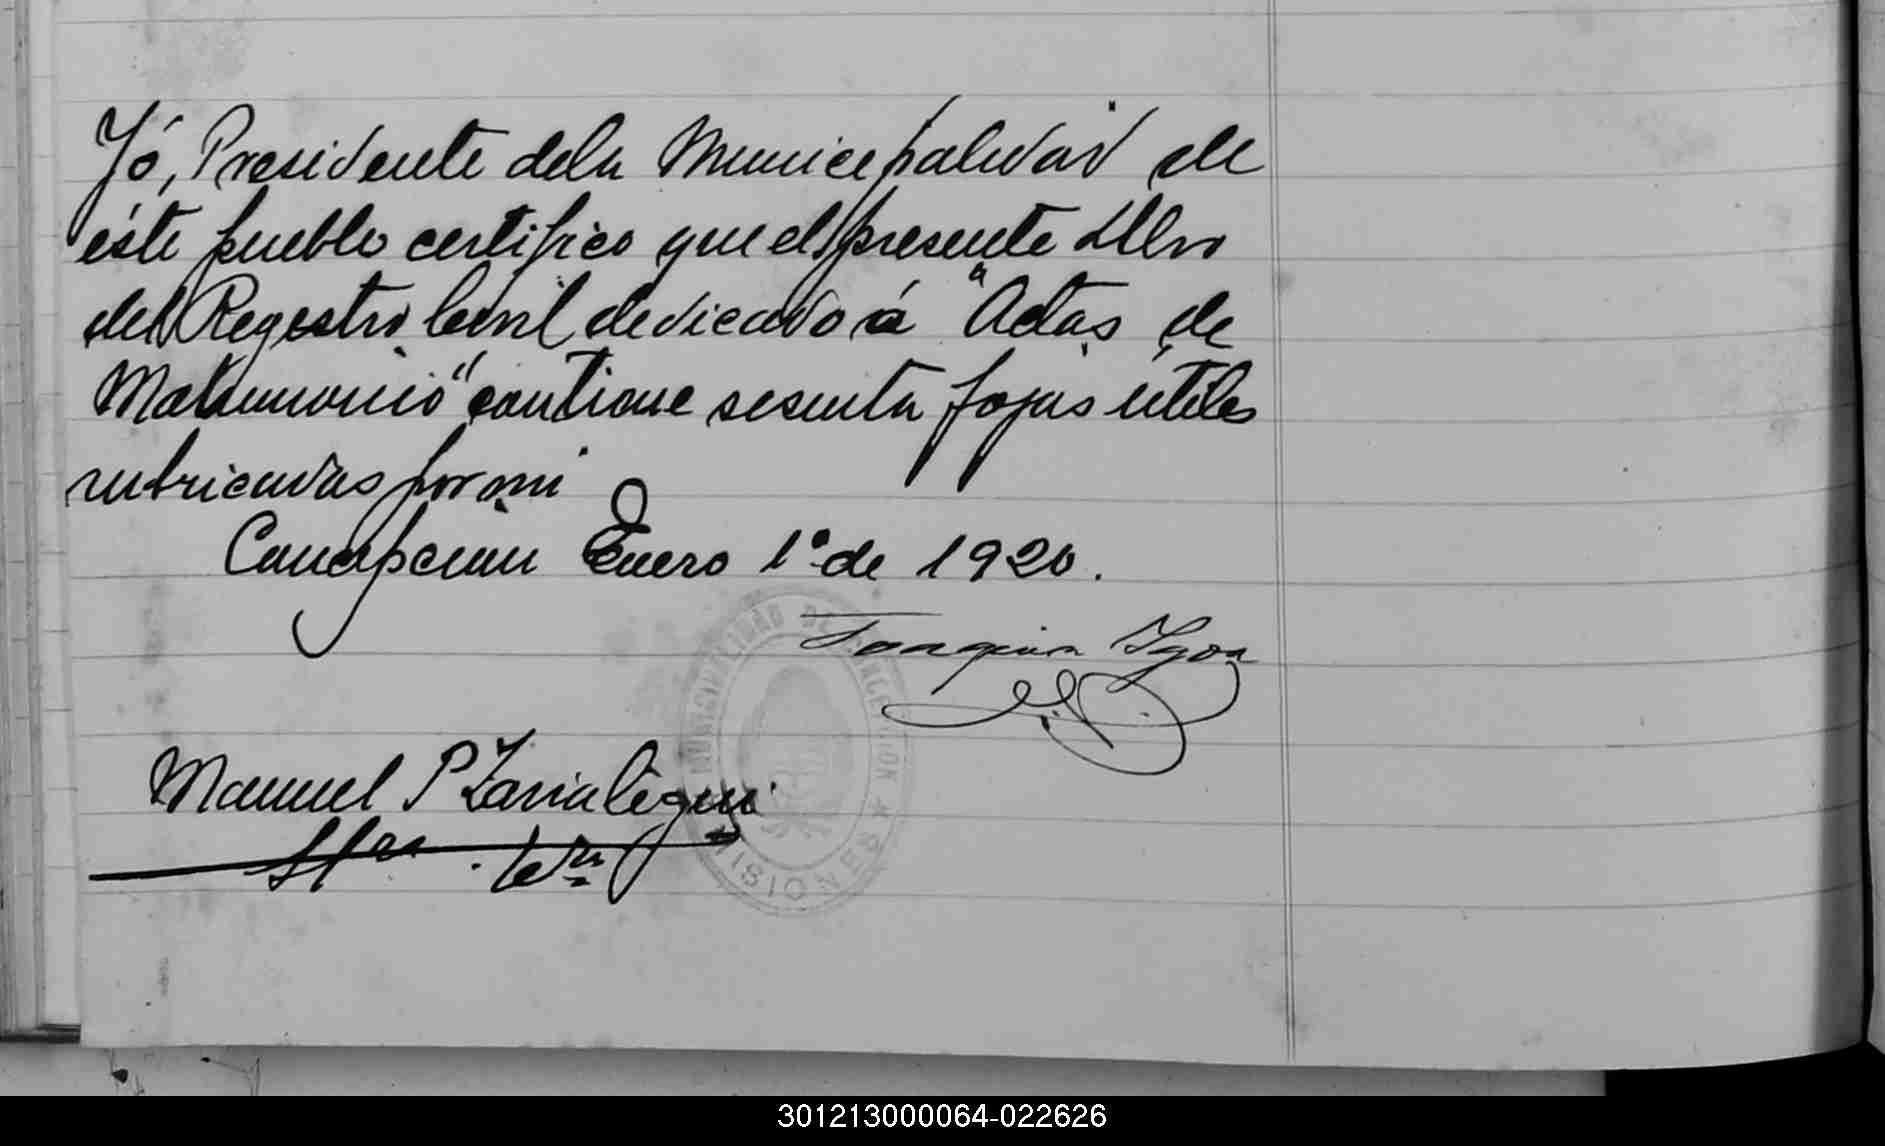 Yó, Presidente dela Municipalidad de
éste pueblo certifico que el presente Libro
del Registro Civil dedicado á "Actas de
Matrimonio" contiene sesenta fojas útiles
rubricadas por mi
Concepción Enero 1º de 1920.
MUNICIPALIDAD DE CONCEPCION
Joaquin Ygoa
Manuel P
MISIONES
301213000064-022626